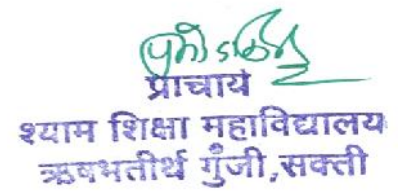 प्राचार्य
श्याम शिक्षा महाविद्यालय
ऋषभतीर्थ गुँजी,सक्ती